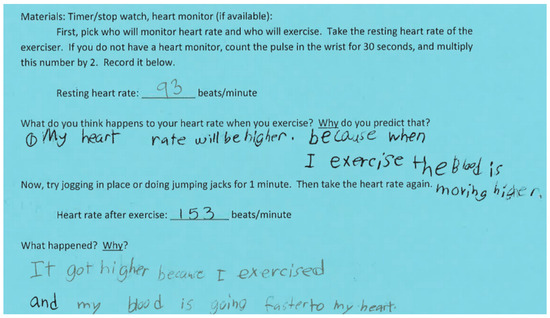 Materials: Timer/stop watch, heart monitor (if available):
First, pick who will monitor heart rate and who will exercise. Take the resting heart rate of the
exerciser. If you do not have a heart monitor, count the pulse in the wrist for 30 seconds, and multiply
this number by 2. Record it below.
Resting heart rate: 93 beats/minute
What do you think happens to your heart rate when you exercise? Why do you predict that?
① My heart rate will be higher. because when
I exercise the Blood is
moving higher.
Now, try jogging in place or doing jumping jacks for 1 minute. Then take the heart rate again.
Heart rate after exercise: 153 beats/minute
What happened? Why?
It got higher because I exercised
and my blood is going faster to my heart.